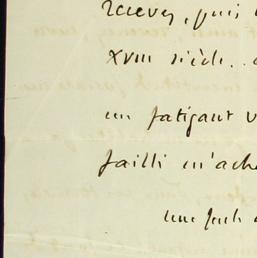 recevez, puis
XVIII siècle..
un fatigant v
failli m'ach
une